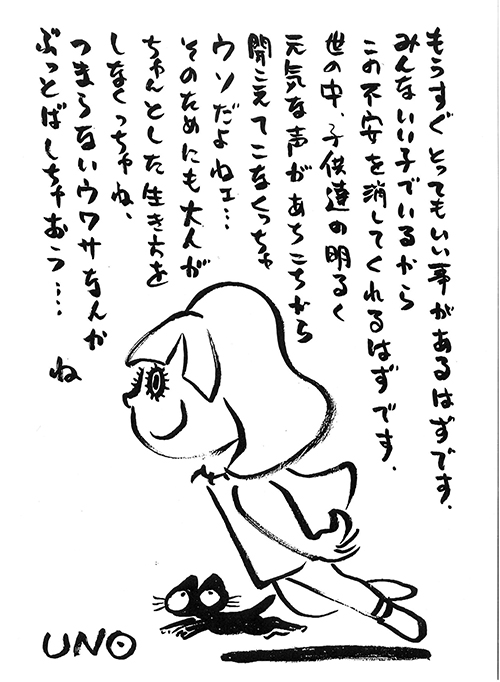 もうすぐとってもいい事があるはずです.
みんないい子でいるから
この不安を消してくれるはずです.
世の中、子供達の明るく
元気な声があちこちから
聞こえてこなくっちゃ
ウソだよねェ…
そのためにも大人が
ちゃんとした生き方を
しなくっちゃね、
つまらないウワサなんか
ぶっとばしちゃおう…. ね
UNO